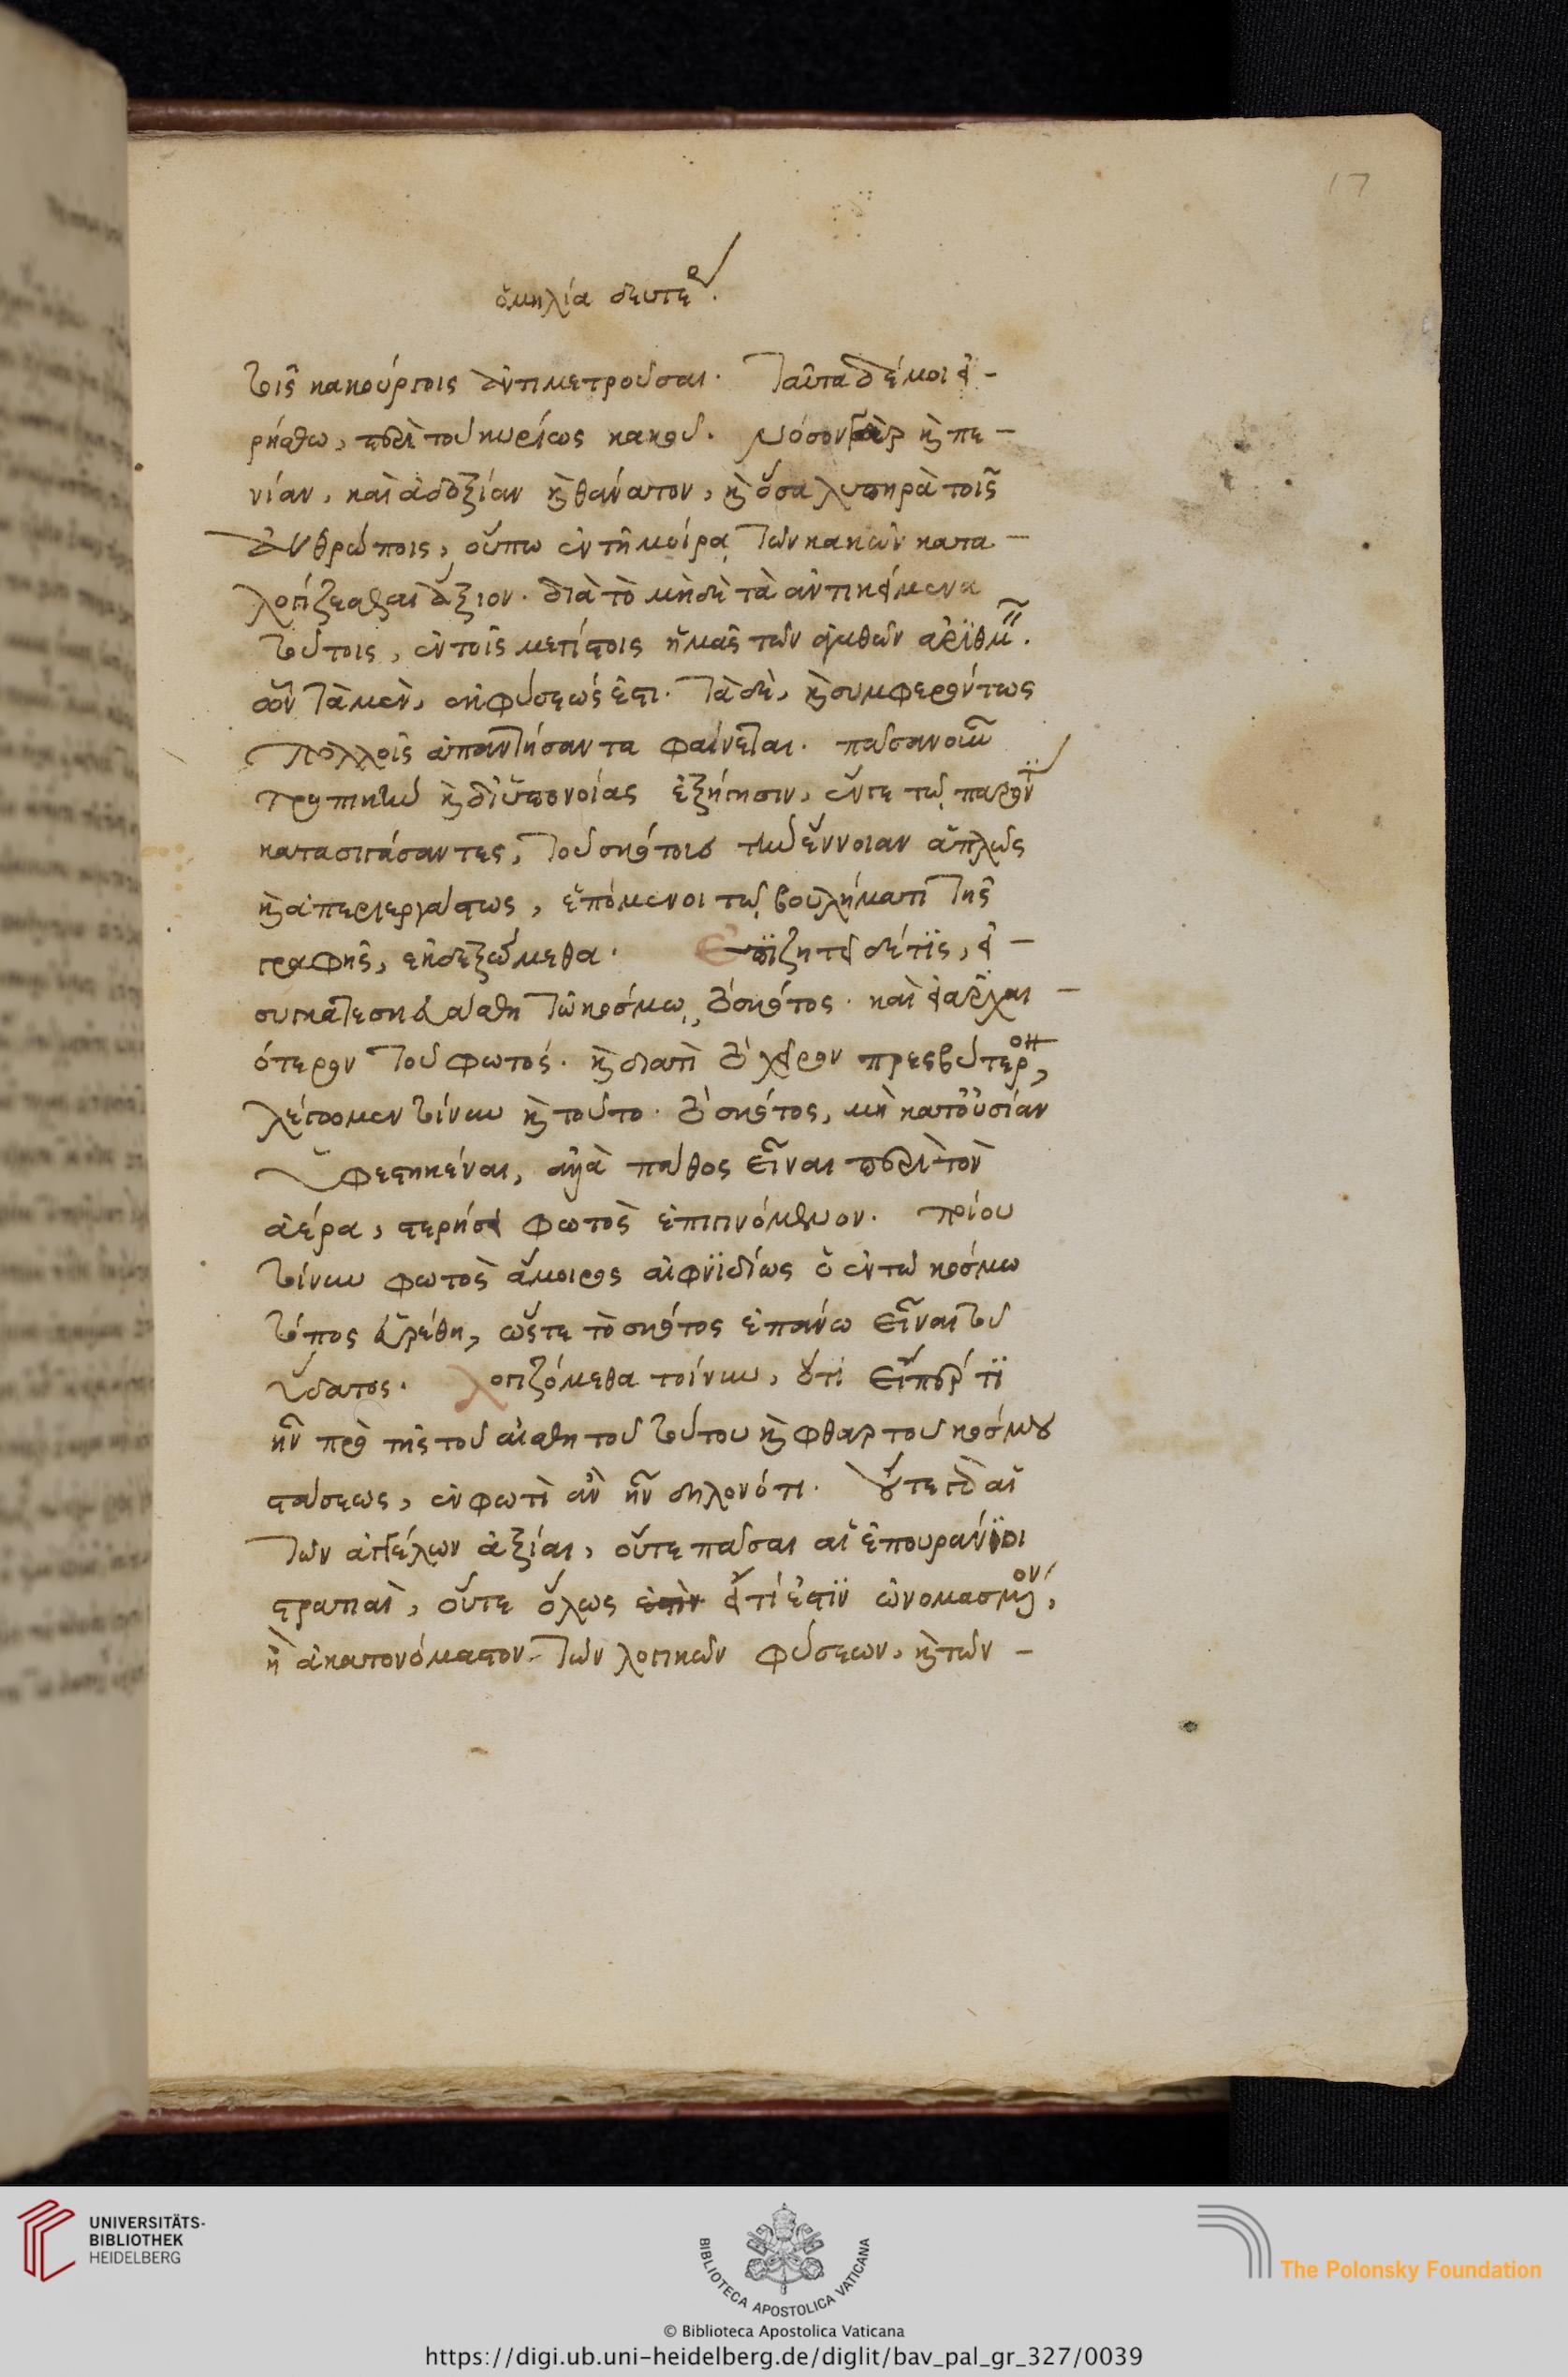 17
ὁμηλία δευτέρ.
τοῖς κακούργοις ἀντιμετροῦσαι. Ταῦτα δέ μοι εἰ-
ρήσθω, περὶ τοῦ κυρίως κακοῦ. νόσον γὰρ καὶ πε-
νίαν, καὶ ἀδοξίαν καὶ θάνατον, καὶ ὅσα λυπηρὰ τοῖς
ἀνθρώποις, οὔπω ἐν τῇ μοίρᾳ τῶν κακῶν κατα-
λογίζεσθαι ἄξιον. διὰ τὸ μηδὲ τὰ ἀντικείμενα
τούτοις, ἐν τοῖς μεγίστοις ἡμᾶς τῶν ἀγαθῶν ἀριθμ.
ὧν τὰ μὲν, ἐκ φύσεώς ἐστι. τὰ δὲ, καὶ συμφερόντως
πολλοῖς ἀπαντήσαντα φαίνεται. πᾶσαν οὖν
τροπικὴν καὶ δι' ὑπονοίας ἐξήγησιν, ἔν τε τῷ παρόντι
κατασιγάσαντες, τοῦ σκότους τὴν ἔννοιαν ἁπλῶς
καὶ ἀπεριεργάστως, ἑπόμενοι τῷ βουλήματι τῆς
γραφῆς, ἐκδεξώμεθα. Ἐπιζητεῖ δέ τις, εἰ -
συγκατεσκευάσθη τῷ κόσμῳ, τὸ σκότος. καὶ εἰ ἀρχαι-
ότερον τοῦ φωτός. καὶ διατί τὸ χεῖρον πρεσβύτερον,
λέγομεν τοίνυν καὶ τοῦτο. τὸ σκότος, μὴ κατ' οὐσίαν
ὑφεστηκέναι, ἀλλὰ πάθος εἶναι περὶ τὸν
ἀέρα, στερήσει φωτὸς ἐπιγινόμενον. ποίου
τοίνυν φωτὸς ἄμοιρος αἰφνιδίως ὁ ἐν τῷ κόσμῳ
τόπος εὑρέθη, ὥστε τὸ σκότος ἐπάνω εἶναι τοῦ
ὕδατος. λογιζόμεθα τοίνυν, ὅτι εἴπερ τι
ἦν πρὸ τῆς τοῦ αἰσθητοῦ τούτου καὶ φθαρτοῦ κόσμου
στάσεως, ἐν φωτὶ ἂν ἦν δηλονότι. οὔτε γὰρ αἱ
τῶν ἀγγέλων ἀξίαι, οὔτε πᾶσαι αἱ ἐπουράνιοι
στρατιαὶ, οὔτε ὅλως εἴ τί ἐστιν ὠνομασμένον,
ἢ ἀκατονόμαστον τῶν λογικῶν φύσεων, καὶ τῶν -
UNIVERSITÄTS-
BIBLIOTHEK
HEIDELBERG
BIBLIOTECA APOSTOLICA VATICANA
The Polonsky Foundation
© Biblioteca Apostolica Vaticana
https://digi.ub.uni-heidelberg.de/diglit/bav_pal_gr_327/0039